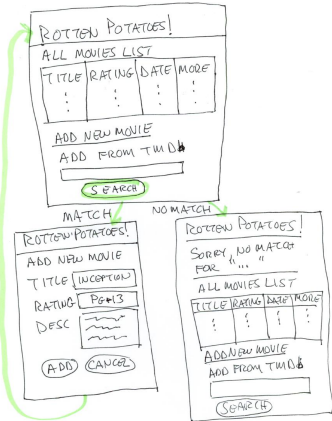 ROTTEN POTATOES!
ALL MOVIES LIST
TITLE RATING DATE MORE
ADD NEW MOVIE
ADD FROM TMDb
SEARCH
MATCH NO MATCH
ROTTEN POTATOES!
ADD NEW MOVIE
TITLE INCEPTION
RATING PG-13
DESC
ADD CANCEL
ROTTEN POTATOES!
SORRY, NO MATCH
FOR "..."
ALL MOVIES LIST
TITLE RATING DATE MORE
ADD NEW MOVIE
ADD FROM TMDb
SEARCH